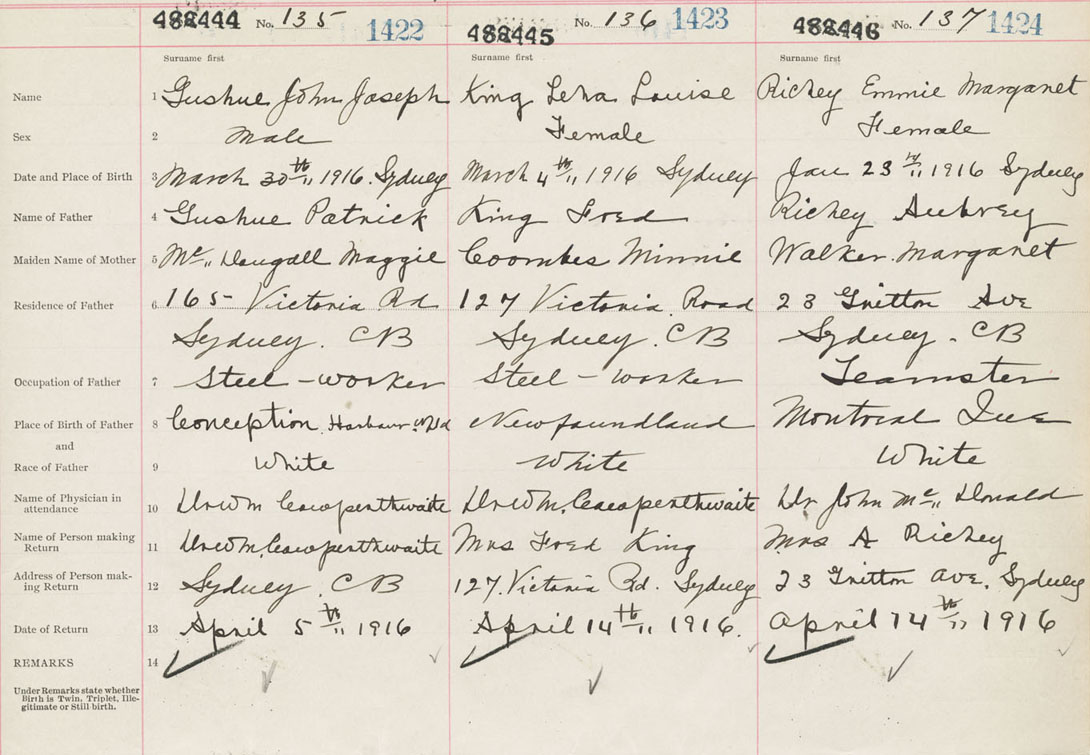 488444 No. 135 1422 488445 No. 136 1423 488446 No. 137 1424
Surname first Surname first Surname first
Name 1 Gushue John Joseph King Lena Louise Richey Emmie Margaret
Sex 2 Male Female Female
Date and Place of Birth 3 March 30th 1916. Sydney March 4th 1916 Sydney Jan 23 1916 Sydney
Name of Father 4 Gushue Patrick King Fred Richey Aubrey
Maiden Name of Mother 5 Mc Dougall Maggie Coombes Minnie Walker Margaret
Residence of Father 6 165 Victoria Rd 127 Victoria Road 23 Ave
Sydney. CB Sydney. CB Sydney. CB
Occupation of Father 7 Steel-worker Steel-worker Teamster
Place of Birth of Father 8 Conception Harbour Nfld Newfoundland Montreal Que
and
Race of Father 9 White White White
Name of Physician in
attendance 10 Dr Wm Dr Wm Dr John Mc Donald
Name of Person making
Return 11 Dr Wm Mrs Fred King Mrs A Richey
Address of Person mak-
ing Return 12 Sydney. CB 127 Victoria Rd. Sydney 23 Ave. Sydney
Date of Return 13 April 5th 1916 April 14th 1916. April 14th 1916
REMARKS 14
Under Remarks state whether
Birth is Twin, Triplet, Ille-
gitimate or Still birth.